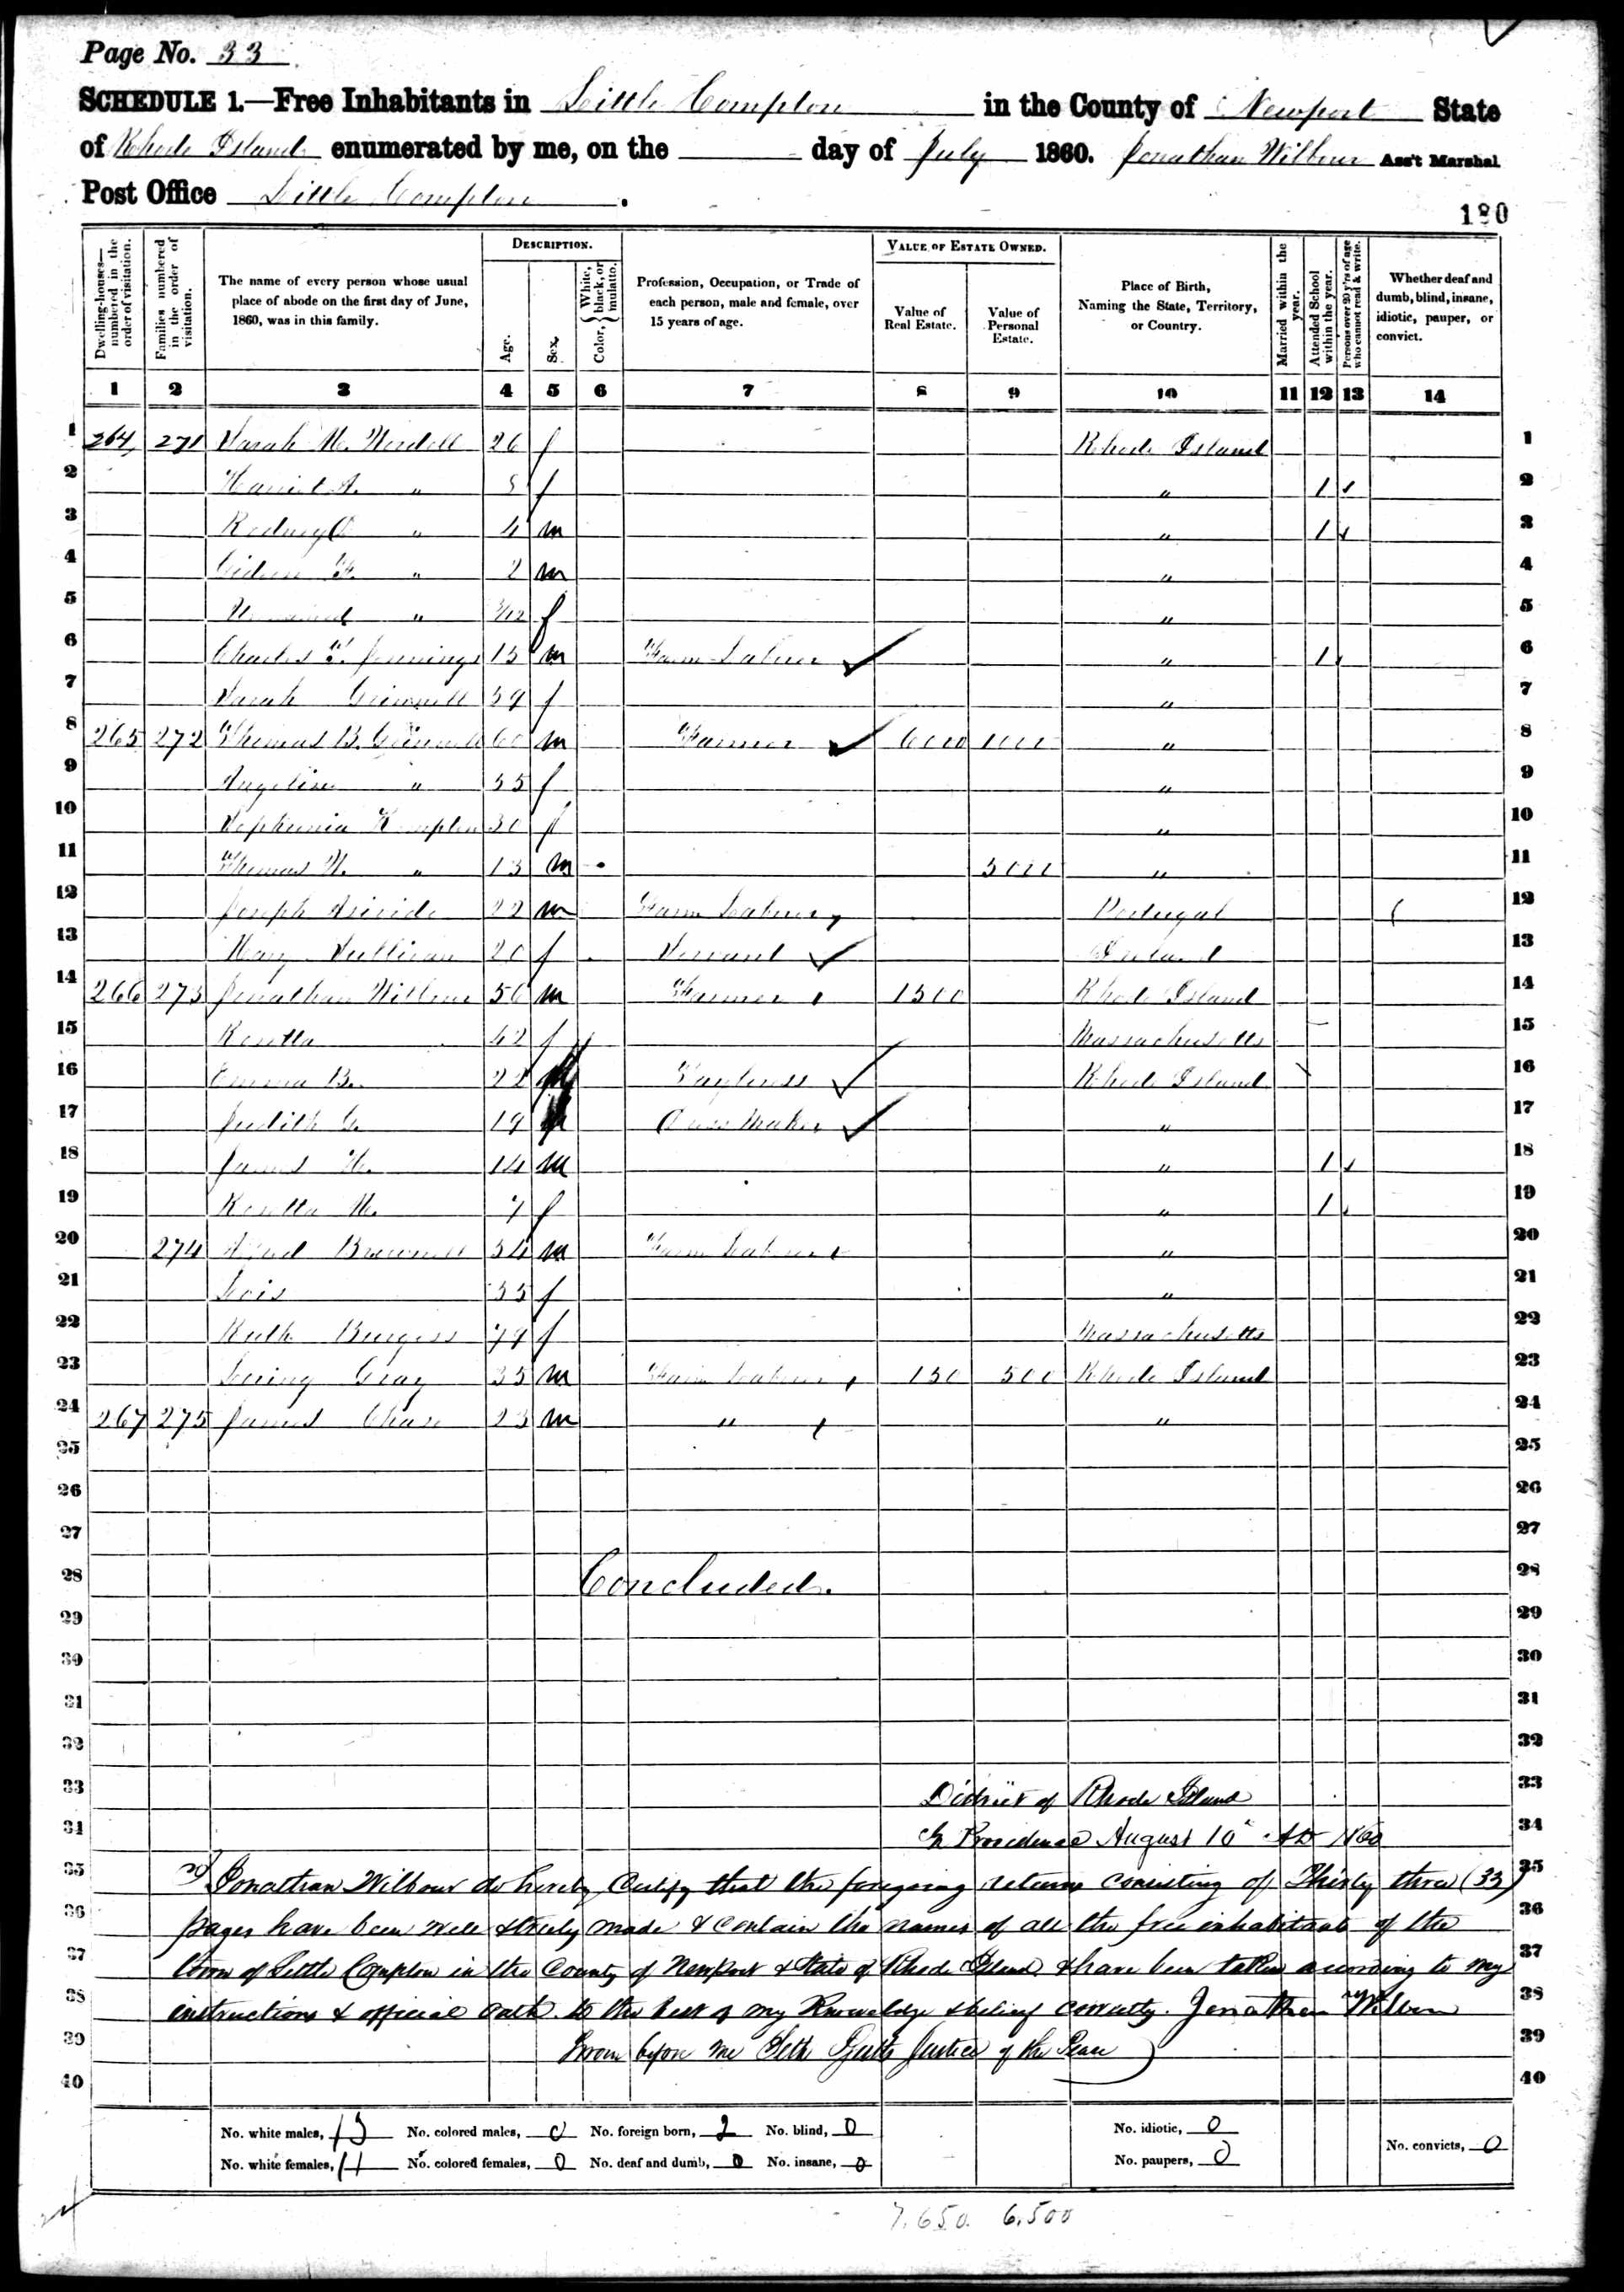 Page No. 33
SCHEDULE 1.—Free Inhabitants in Little Compton in the County of Newport State
of Rhode Island enumerated by me, on the day of July 1860. Jonathan Wilbour Ass't Marshal
Post Office Little Compton.
180
Dwelling-houses—numbered in the order of visitation.
Families numbered in the order of visitation.
The name of every person whose usual place of abode on the first day of June, 1860, was in this family.
DESCRIPTION.
Age.
Sex.
Color, { White, black, or mulatto.
Profession, Occupation, or Trade of each person, male and female, over 15 years of age.
VALUE OF ESTATE OWNED.
Value of Real Estate.
Value of Personal Estate.
Place of Birth, Naming the State, Territory, or Country.
Married within the year.
Attended School within the year.
Persons over 20 y'rs of age who cannot read & write.
Whether deaf and dumb, blind, insane, idiotic, pauper, or convict.
1 2 3 4 5 6 7 8 9 10 11 12 13 14
1 264 271 Sarah M. 26 f Rhode Island 1
2 Harriet A. " f " 1 2
3 Rodney " 4 m " 1 3
4 Gideon " 2 m " 4
5 " f " 5
6 Charles Jennings 15 m Farm Labour " 1 6
7 Sarah Grinnell 59 f " 7
8 265 272 Thomas B. Grinnell 60 m Farmer 6000 1000 " 8
9 Angeline " 55 f " 9
10 30 f " 10
11 Thomas " 13 m 5000 " 11
12 Joseph 22 m Farm Labour Portugal 12
13 Mary Sullivan 20 f Servant Ireland 13
14 266 273 Jonathan Wilbour 50 m Farmer 1500 Rhode Island 14
15 Rosetta 42 f Massachusetts 15
16 Emma B. 22 Tayloress Rhode Island 16
17 Judith G. 19 Dress Maker " 17
18 James 14 m " 1 18
19 Rosetta M. 7 f " 1 19
20 274 Brownell 54 m Farm Labour " 20
21 Lois 55 f " 21
22 Ruth Burgess 79 f Massachusetts 22
23 Loring Gray 35 m Farm Labour 150 500 Rhode Island 23
24 267 275 James Chase 23 m " " 24
25 25
26 26
27 27
28 Concluded. 28
29 29
30 30
31 31
32 32
33 District of Rhode Island 33
34 In Providence August 10 AD 1860 34
35 I Jonathan Wilbour do hereby Certify that the foregoing returns consisting of Thirty three (33) 35
36 pages have been well & truly made & contain the names of all the free inhabitants of the 36
37 Town of Little Compton in the County of Newport & State of Rhode Island & have been taken according to my 37
38 instructions & official oath to the best of my Knowledge & belief correctly. Jonathan Wilbour 38
39 Sworn before me Seth Justice of the Peace 39
40 40
No. white males, 13 No. colored males, 0 No. foreign born, 2 No. blind, 0 No. idiotic, 0
No. white females, 11 No. colored females, 0 No. deaf and dumb, 0 No. insane, 0 No. paupers, 0 No. convicts, 0
7,650. 6,500